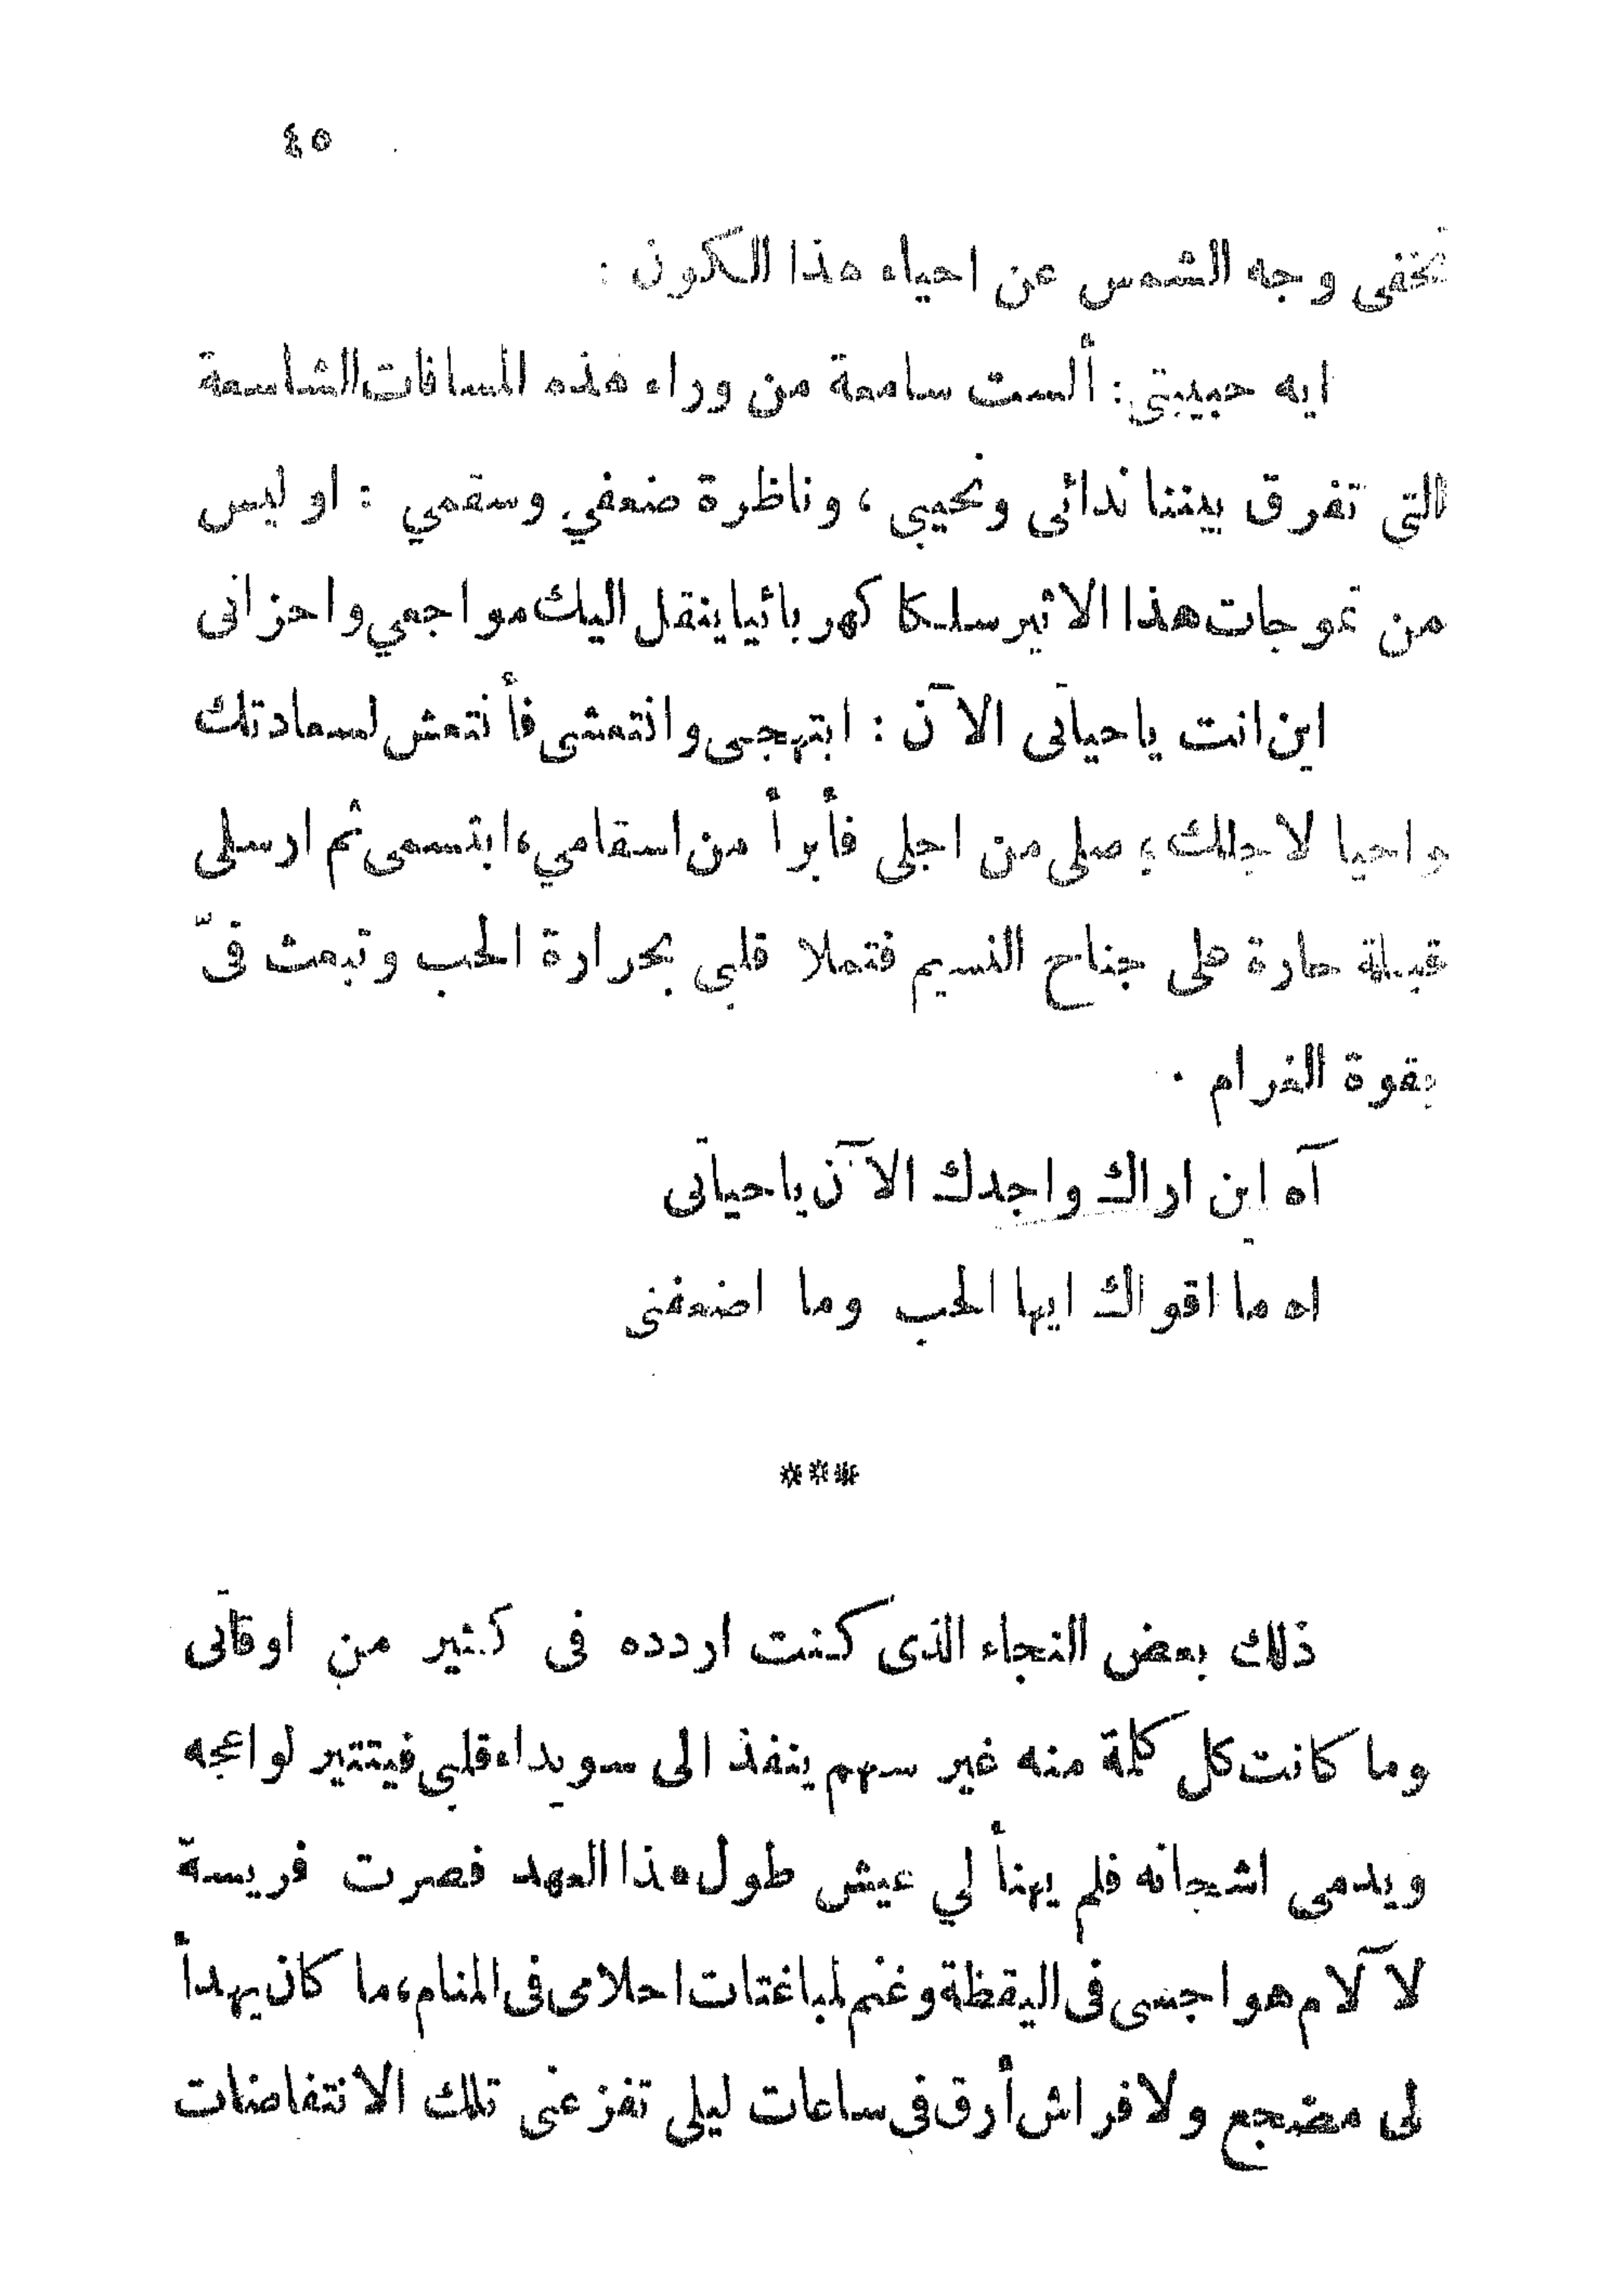 ٤٥
تخفى وجه الشمس عن احياء هذا الكون :
ايه حبيبتى : ألست سامعة من وراء هذه المسافات الشاسعة
التي تفرق بيننا ندائى ونحيبى ، وناظرة ضعفي وسقمي : او ليس
من تموجات هذا الاثير سلكا كهربائيا ينقل اليك مواجعي واحزانى
اين انت ياحياتى الآن : ابتهجى وانتعشى فأنتعش لسعادتك
واحيا لاجلك ؛ صلى من اجلى فأبرأ من اسقامي ، ابتسمى ثم ارسلى
قبلة حارة على جناح النسيم فتملا قلبى بحرارة الحب وتبعث فىّ
بقوة الغرام .
آه اين اراك واجدك الآن ياحياتى
اه ما اقواك ايها الحب وما اضعفنى
***
ذلك بعض النجاء الذى كنت اردده فى كثير من اوقاتى
وما كانت كل كلمة منه غير سهم ينفذ الى سويداء قلبى فيتتير لواعجه
ويدمى اشجانه فلم يهنأ لي عيش طول هذا العهد فصرت فريسة
لآلام هواجسى فى اليقظة وغنم لمباغتات احلامى فى المنام ، ما كان يهدأ
لى مضجع ولا فراش أرق فى ساعات ليلى تفزعنى تلك الانتفاضات